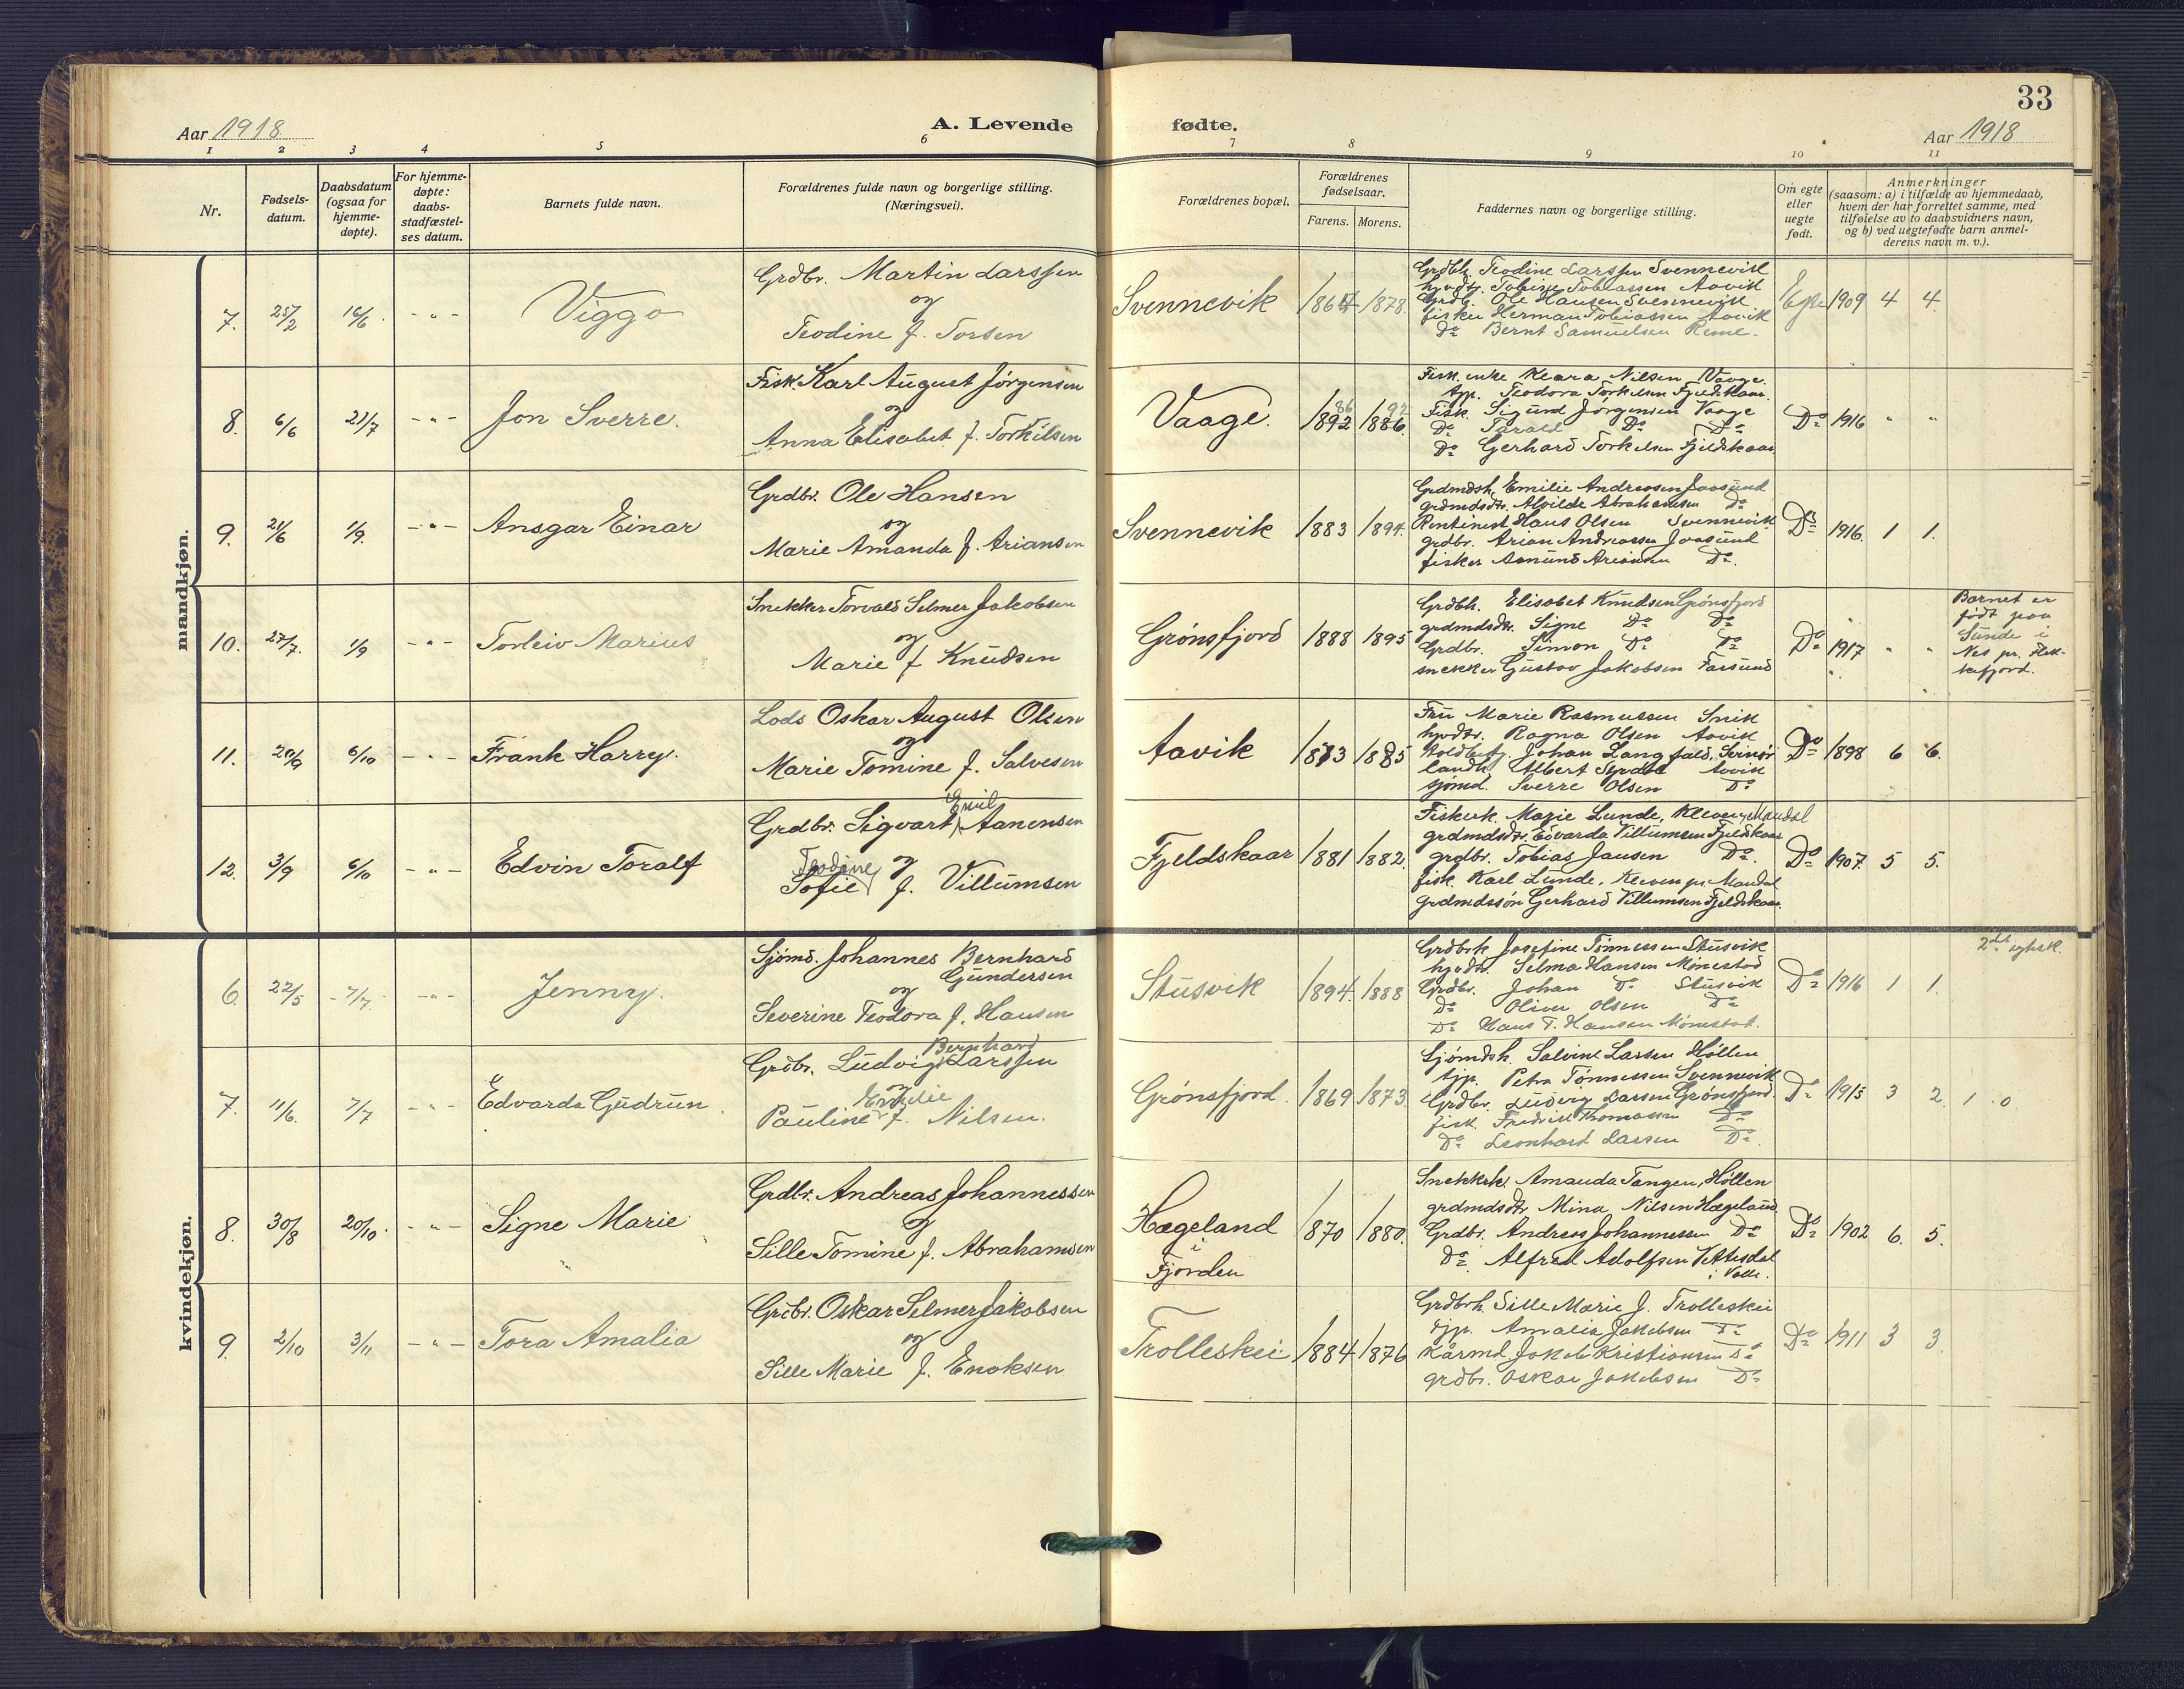 33
Aar 1918
A. Levende fødte.
Aar 1918
1 2 3 4 5 6 7 8 9 10 11
Nr.
Fødsels-
datum.
Daabsdatum
(ogsaa for
hjemme-
døpte).
For hjemme-
døpte:
daabs-
stadfæstel-
ses datum.
Barnets fulde navn.
Forældrenes fulde navn og borgerlige stilling.
(Næringsvei).
Forældrenes bopæl.
Forældrenes
fødselsaar.
Farens. Morens.
Faddernes navn og borgerlige stilling.
Om egte
eller
uegte
født.
Anmerkninger
(saasom: a) i tilfælde av hjemmedaab,
hvem der har forrettet samme, med
tilføielse av to daabsvidners navn,
og b) ved uegtefødte barn anmel-
derens navn m. v.).
mandkjøn.
7. 25/2 16/6 - " - Viggo
Grdbr. Martin Larssen
og
Teodine f. Torsen
Svennevik 1864 1878.
Grdbh. Teodine Larssen Svennevik
hpvdtr. Tobine Tobiassen Aavik
Grdb. Ole Hansen Svennevik
fisker Herman Tobiassen Aavik
Do Bernt Samuelsen Reme.
Egte 1909 4 4.
8. 6/6 21/7 - " - Jon Sverre.
Fisk. Karl August Jørgensen
og
Anna Elisabet f. Torkilsen
Vaage. 1892 86 1886. 92
Fisk. enke Klara Nilsen Vaage.
tjp. Teodora Torkelsen Fjeldskaar.
Fisk. Sigurd Jørgensen Vaage
Do Torald Do Do
Do Gerhard Torkelsen Fjeldskaar
Do 1916 " "
9. 21/6 1/9. - " - Ansgar Einar
Grdbr. Ole Hansen
og
Marie Amanda f. Ariansen
Svennevik 1883 1894.
Grdmdsh. Emilie Andreasen Jaasund
grdmdsdtr. Alvilde Abrahamsen Do
Rentinest Hans Olsen Svennevik
grdbr. Arian Andreassen Jaasund
fisker Asmund Ariansen Do.
Do 1916. 1 1.
10. 27/7. 1/9 - " - Torleiv Marius
Snekker Torvald Selmer Jakobsen
og
Marie f. Knudsen
Grønsfjord 1888 1895
Grdbh. Elisabet Knudsen Grønsfjord
grdmdsdtr. Signe Do Do
Grdbr. Simon Do Do
snekker Gustav Jakobsen Farsund
Do 1917 " "
Barnet er
født paa
Sunde i
Nes pr. Flek-
kefjord.
11. 20/9 6/10 - " - Frank Harry.
Lods Oskar August Olsen
og
Marie Tomine f. Salvesen
Aavik 1873 1885
Fru Marie Rasmussen Snik
hpvdtr. Ragna Olsen Aavik
Toldbetj. Johan Langfald, Svinør
landh. Albert Syrdal Aavik
sjømd. Sverre Olsen Do
Do 1898 6 6.
12. 3/9 6/10 - " - Edvin Toralf
Grdbr. Sigvart Emil Aanensen
og
Teodine
Sofie f. Villumsen
Fjeldskaar 1881 1882.
Fiskerk. Marie Lunde, Kleven pr. Mandal
grdmdsdtr. Edvarda Villumsen Fjeldskaar
grdbr. Tobias Jansen Do.
fisk. Karl Lunde, Kleven pr. Mandal
grdmdssøn Gerhard Villumsen Fjeldskaar.
Do 1907. 5 5.
kvindekjøn.
6. 22/5 - 7/7. - " - Jenny.
Sjømd. Johannes Bernhard
Gundersen
og
Severine Teodora f. Hansen
Stusvik 1894. 1888
Grdbrk. Josefine Tønnessen Stusvik
hpvdtr. Selma Hansen Mønestad
Grdbr. Johan Do Stusvik
Do Oliver Olsen Do
Do Hans T. Hansen Mønestad.
Do 1916 1 1.
2det egtsk.
7. 11/6. 7/7 - " - Edvarda Gudrun.
Grdbr. Ludvig Bernhard Larssen
og
Emilie
Pauline f. Nilsen.
Grønsfjord. 1869 1873.
Sjømdsh. Salvine Lassen Høllen
tjp. Petra Tønnessen Svennevik
Grdbr. Ludvig Lassen Grønsfjord.
fisk. Fredrik Thomassen Do
Do Leonhard Lassen Do.
Do 1915 3 2 1 0
8. 30/8 20/10. - " - Signe Marie
Grdbr. Andreas Johannessen
og
Sille Tomine f. Abrahamsen
Hægeland
i
Fjorden
1870 1880.
Snekkerk. Amanda Tangen, Høllen
grdmdsdtr. Mina Nilsen Hægeland
Grdbr. Andreas Johannessen Do
Do. Alfred Adolfsen Vittesdal
i Valle.
Do 1902 6. 5.
9. 2/10 3/11 - " - Tora Amalia
Grdbr. Oskar Selmer Jakobsen
og
Sille Marie f. Enoksen
Trolleskei 1884 1876
Grdbrh. Sille Marie J. Trolleskei
tjp. Amalia Jakobsen Do
Kårmd. Jakob Kristiansen Do
grdbr. Oskar Jakobsen Do
Do 1911 3 3.